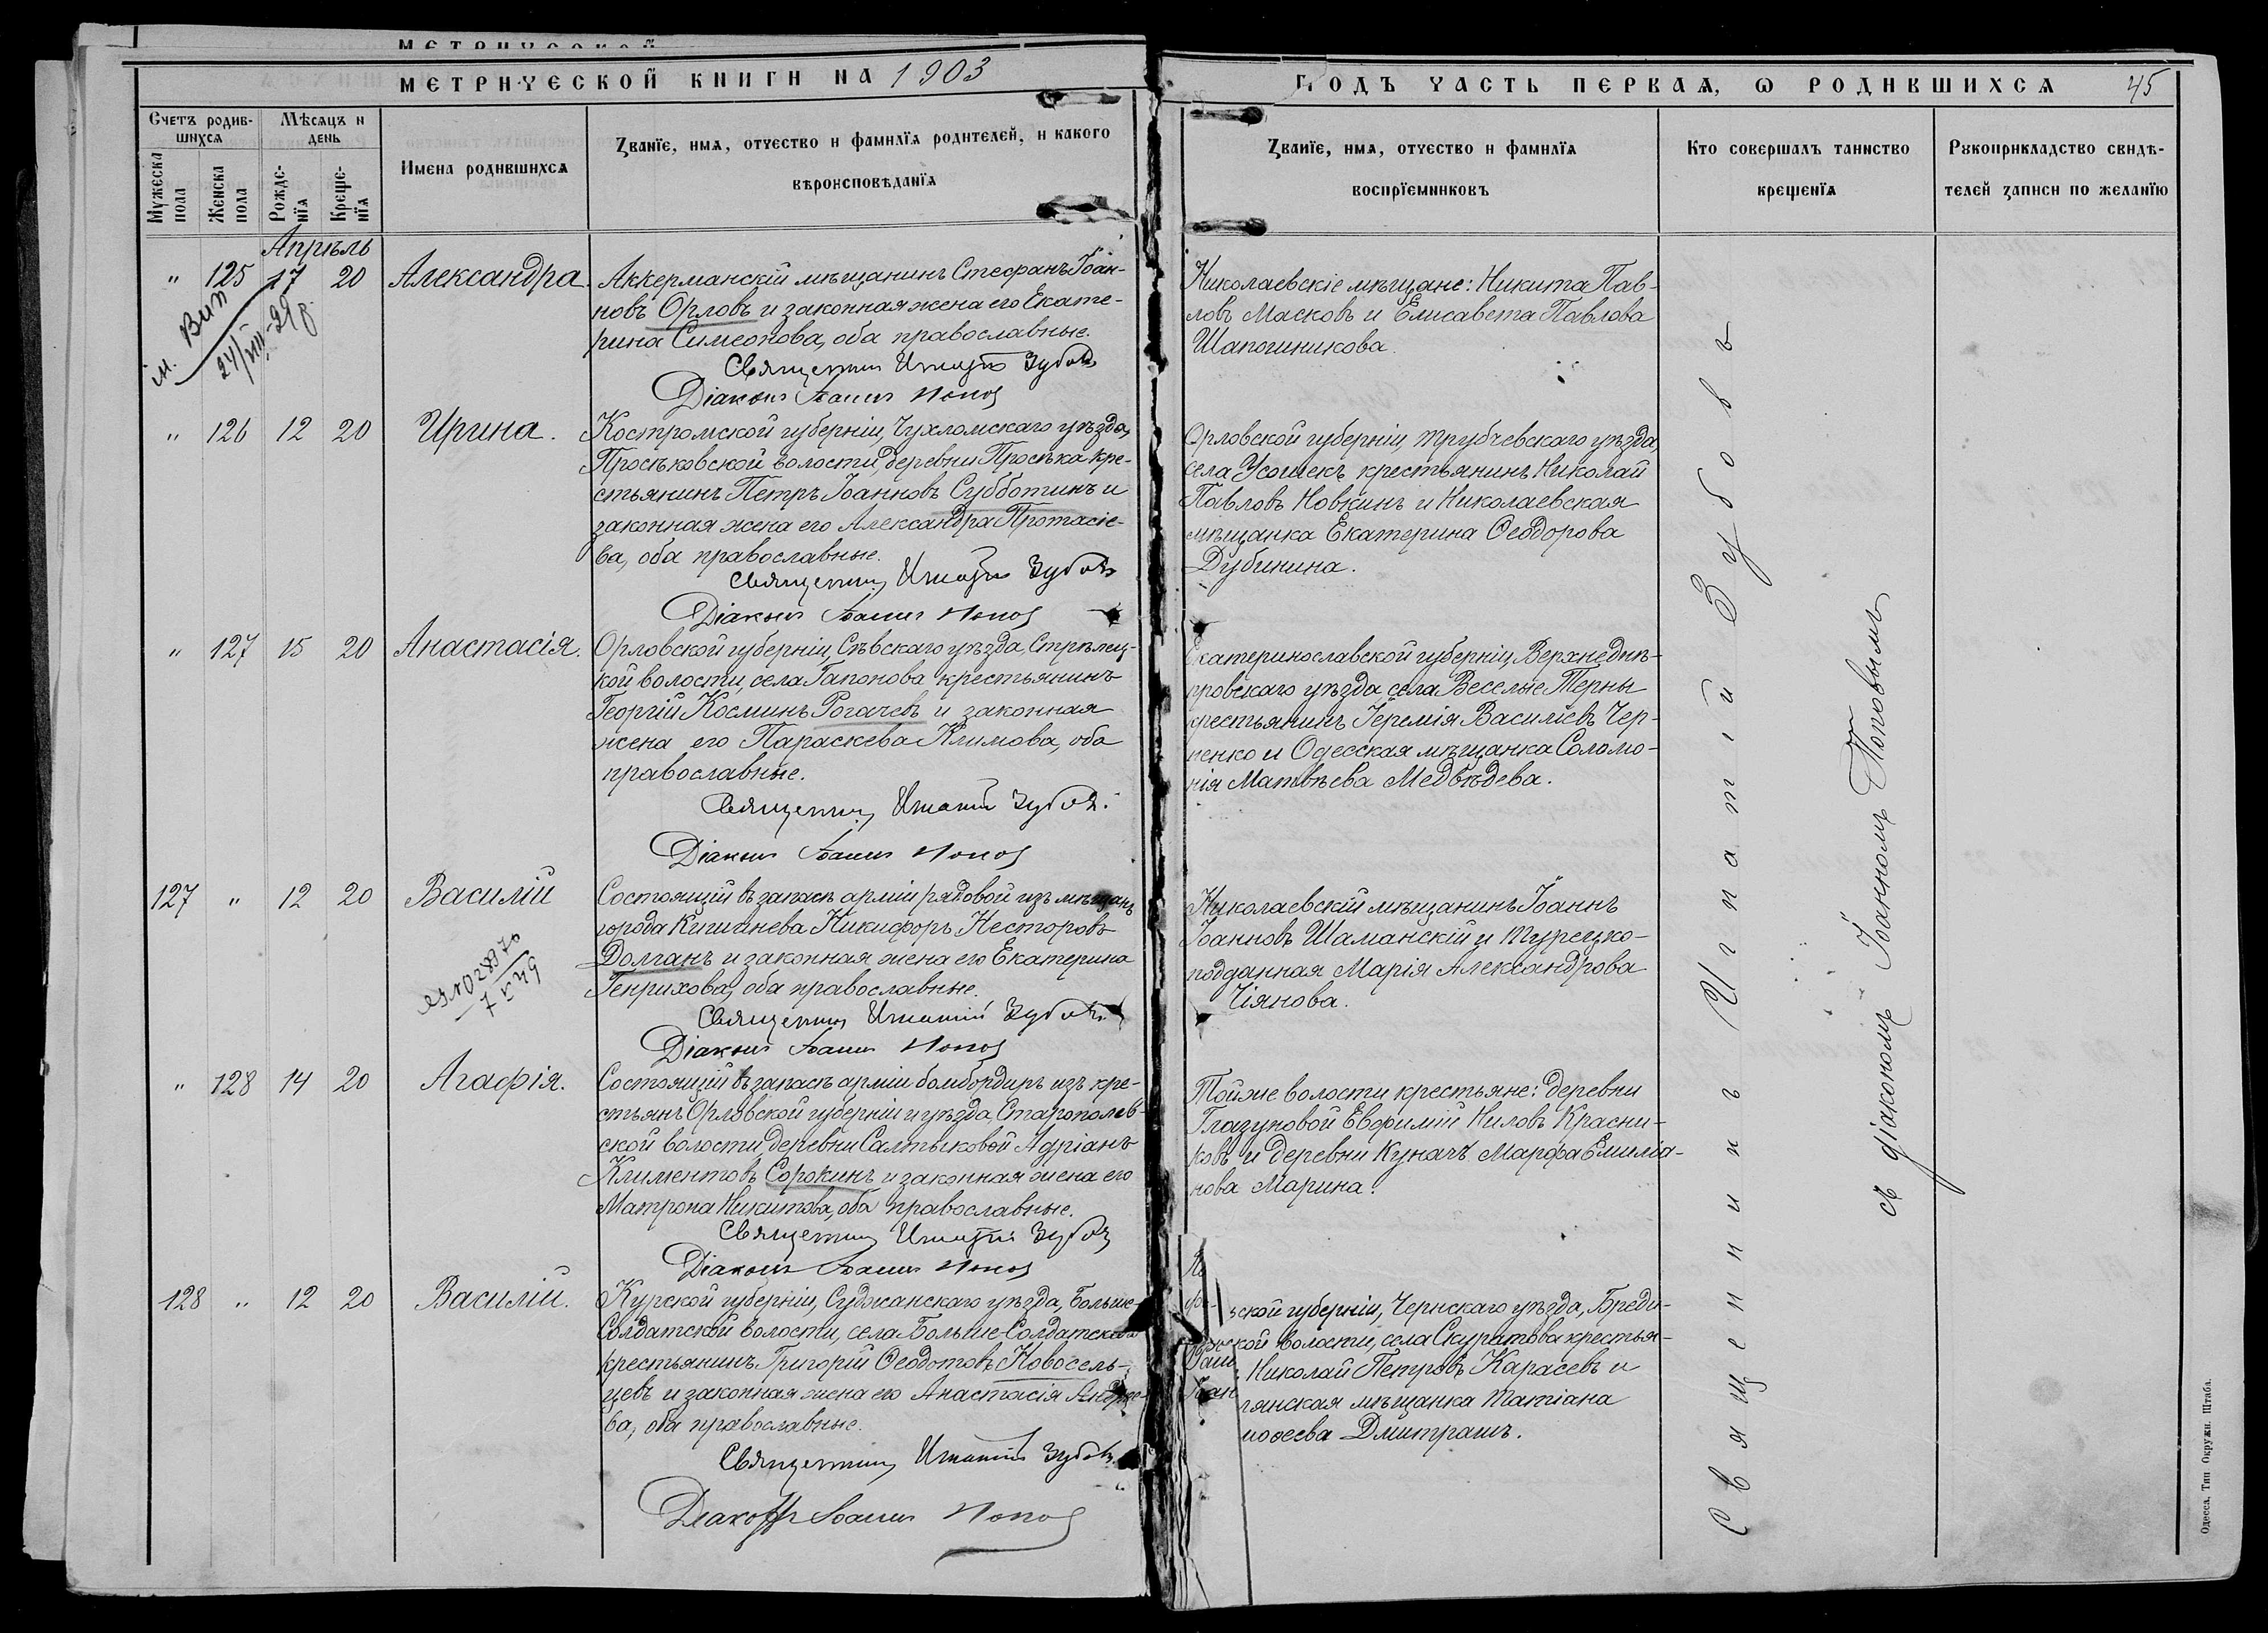 МЕТРИЧЕСКОЙ
МЕТРИЧЕСКОЙ КНИГИ НА 1903
Счетъ родив-
шихся
Мѣсяцъ и
день
Мужеска
пола
Женска
пола
Рожде-
нїя
Креще-
нїя
Имена родившихся
Званїе, имя, отчество и фамилїя родителей, и какого
вѣроисповѣданїя
Апрѣль
" 125 17 20 Александра.
Аккерманскій мѣщанинъ Стефанъ Іоан-
новъ Орловъ и законная жена его Екате-
рина Симеонова, оба православные.
Священникъ Игнатій Зубовъ
Діаконъ Іоаннъ Попов
м. Вип
24/VIII 29 г.
" 126 12 20 Ирина.
Костромской губерніи, Чухломскаго уѣзда,
Просѣковской волости, деревни Просѣка кре-
стьянинъ Петръ Іоанновъ Субботинъ и
законная жена его Александра Протасіе-
ва, оба православные.
Священникъ Игнатій Зубовъ
Діаконъ Іоаннъ Попов
" 127 15 20 Анастасія.
Орловской губерніи, Сѣвскаго уѣзда, Стрѣлец-
кой волости, села Гапонова крестьянинъ
Георгій Косминъ Рогачевъ и законная
жена его Параскева Климова, оба
православные.
Священникъ Игнатій Зубовъ.
Діаконъ Іоаннъ Попов
127 " 12 20 Василій
Состоящій въ запасѣ арміи рядовой изъ мѣщанъ
города Кишинева Никифоръ Несторовъ
Долганъ и законная жена его Екатерина
Генрихова, оба православные.
Священникъ Игнатій Зубовъ
Діаконъ Іоаннъ Попов
" 128 14 20 Агафія.
Состоящій въ запасѣ арміи бомбордиръ изъ кре-
стьянъ Орловской губерніи и уѣзда, Старополев-
ской волости, деревни Салтыковой Адріанъ
Климентовъ Сорокинъ и законная жена его
Матрона Никитова, оба православные.
Священникъ Игнатій Зубовъ
Діаконъ Іоаннъ Попов
128 " 12 20 Василій.
Курской губерніи, Суджанскаго уѣзда, Больше-
Солдатской волости, села Больше-Солдатского
крестьянинъ Григорій Ѳеодотовъ Новосель-
цевъ и законная жена его Анастасія Андрее-
ва, оба православные.
Священникъ Игнатій Зубовъ
Діаконъ Іоаннъ Попов
ГОДЪ ЧАСТЬ ПЕРВАЯ, Ѡ РОДИВШИХСЯ 45
Званїе, имя, отчество и фамилїя
воспрїемниковъ
Кто совершалъ таинство
крещенїя
Рукоприкладство свидѣ-
телей записи по желанїю
Николаевскіе мѣщане: Никита Пав-
ловъ Масковъ и Елисавета Павлова
Шапошникова.
Орловской губерніи, Трубчевскаго уѣзда,
села Усошекъ крестьянинъ Николай
Павловъ Новкинъ и Николаевская
мѣщанка Екатерина Ѳеодорова
Дубинина.
Екатеринославской губерніи, Верхнеднѣ-
провскаго уѣзда, села Веселые Терны
крестьянинъ Іеремія Василіевъ Чер-
ненко и Одесская мѣщанка Соломо-
нія Матвѣева Медвѣдева.
Николаевскій мѣщанинъ Іоаннъ
Іоанновъ Шаманскій и Турецко-
подданная Марія Александрова
Чіянова.
Тойже волости крестьяне: деревни
Глазуновой Евфимій Ниловъ Красни-
ковъ и деревни Куначъ Марфа Емиліа-
нова Марина.
ьской губерніи, Чернскаго уѣзда, Бреди-
ской волости, села Скуратова крестья-
Николай Петровъ Карасевъ и
лянская мѣщанка Татіана
моѳеева Дмитрашъ.
Священникъ Игнатій Зубовъ
съ діакономъ Іоанномъ Поповымъ
Одесса. Тип. Окружн. Штаба.